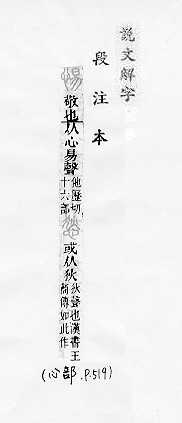 說文解字
段注本
惕
敬也从心易聲他歷切十六部
悐
或从狄狄聲也漢書王商傳如此作
(心部.P.519)